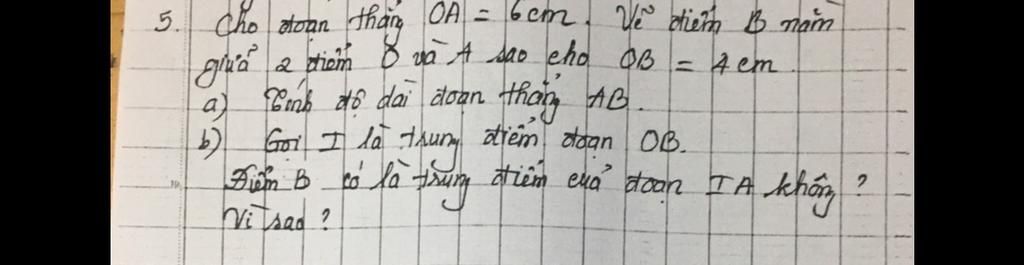 5. Cho đoạn thẳng OA = 6cm. Vẽ điểm B nằm
giữa 2 điểm O và A sao cho OB = 4cm
a) Tính độ dài đoạn thẳng AB.
b) Gọi I là trung điểm đoạn OB.
Điểm B có là trung điểm của đoạn IA không?
Vì sao?